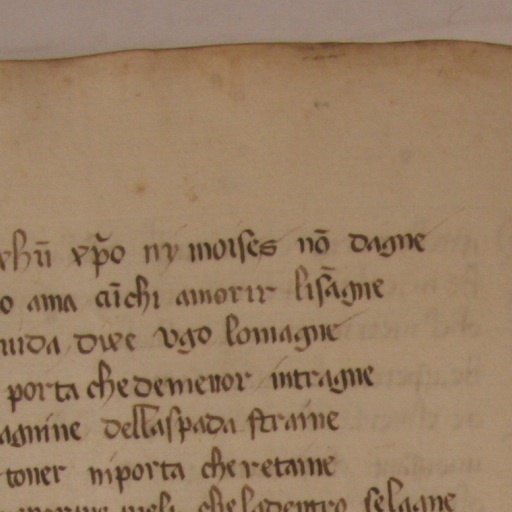 xp̄o ny moises nō dagne
o ama cūchi amorir lisāgne
uida dixe vgo lomagne
porta che demenor intragne
agnine dellaspada straine
toner niporta che retaine
che ladentro selagne